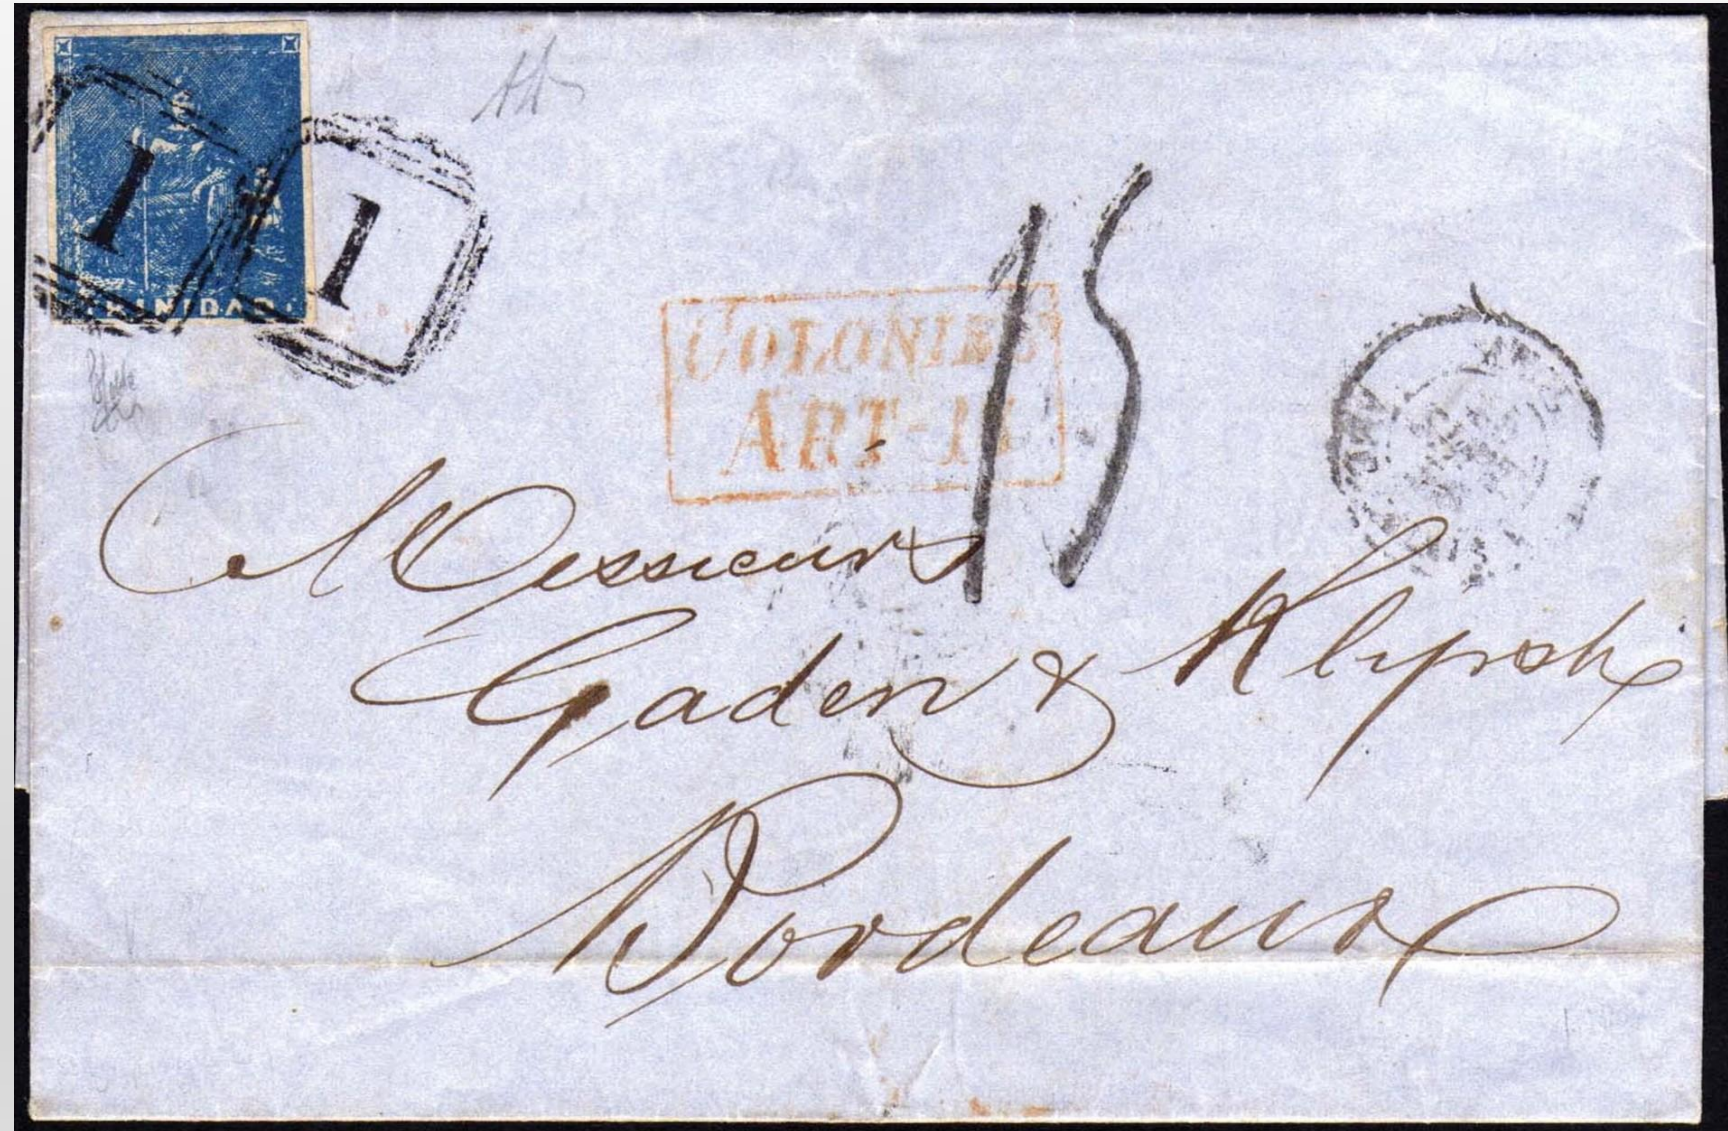 1
1
TRINIDAD.
15
COLONIES
ART-14
Messieurs
Gaden & Klipsch
Bordeaux